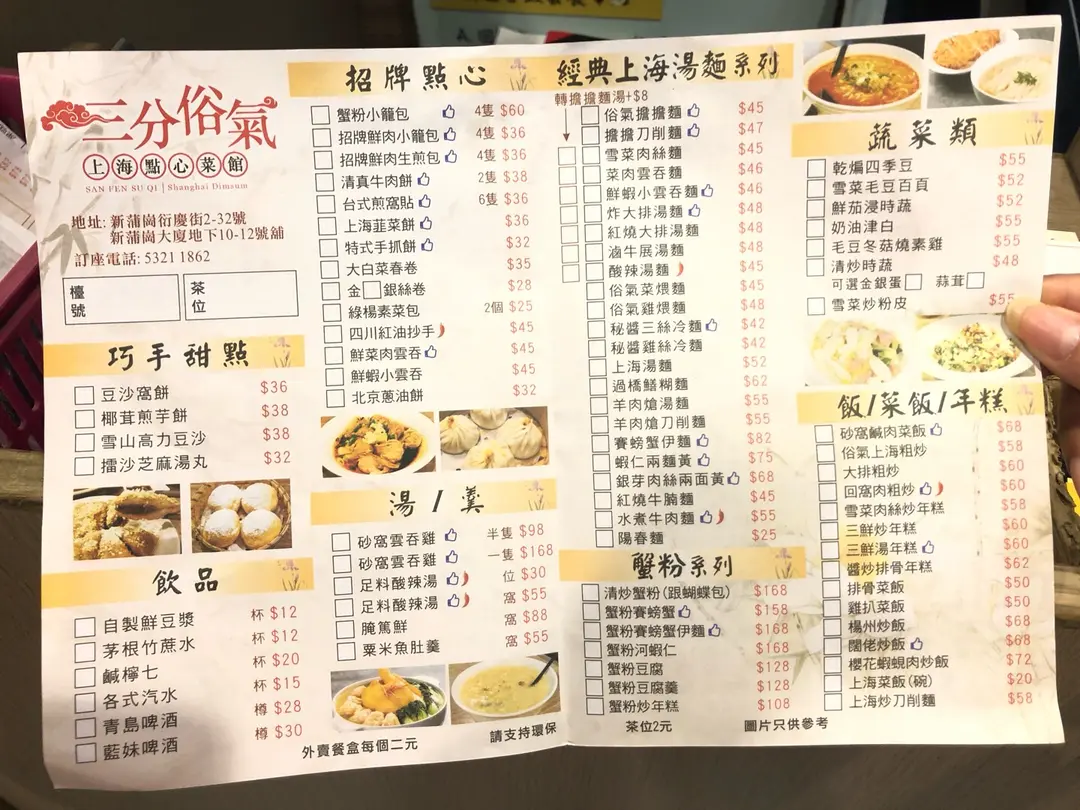 三分俗氣
上海點心菜館
SAN FEN SU QI | Shanghai Dimsum
地址: 新蒲崗衍慶街2-32號
新蒲崗大廈地下10-12號舖
訂座電話: 5321 1862
檯號
茶位
巧手甜點
豆沙窩餅 $36
椰茸煎芋餅 $38
雪山高力豆沙 $38
擂沙芝麻湯丸 $32
飲品
自製鮮豆漿 杯 $12
茅根竹蔗水 杯 $12
鹹檸七 杯 $20
各式汽水 杯 $15
青島啤酒 樽 $28
藍妹啤酒 樽 $30
招牌點心
蟹粉小籠包 4隻 $60
招牌鮮肉小籠包 4隻 $36
招牌鮮肉生煎包 4隻 $36
清真牛肉餅 2隻 $38
台式煎窩貼 6隻 $36
上海韮菜餅 $36
特式手抓餅 $32
大白菜春卷 $35
金 銀絲卷 $28
綠楊素菜包 2個 $25
四川紅油抄手 $45
鮮菜肉雲吞 $45
鮮蝦小雲吞 $45
北京蔥油餅 $32
湯/羹
砂窩雲吞雞 半隻 $98
砂窩雲吞雞 一隻 $168
足料酸辣湯 位 $30
足料酸辣湯 窩 $55
腌篤鮮 窩 $88
粟米魚肚羹 窩 $55
外賣餐盒每個二元
請支持環保
經典上海湯麵系列
轉擔擔麵湯+$8
俗氣擔擔麵 $45
擔擔刀削麵 $47
雪菜肉絲麵 $45
菜肉雲吞麵 $46
鮮蝦小雲吞麵 $46
炸大排湯麵 $48
紅燒大排湯麵 $48
滷牛展湯麵 $48
酸辣湯麵 $45
俗氣菜煨麵 $45
俗氣雞煨麵 $48
秘醬三絲冷麵 $42
秘醬雞絲冷麵 $42
上海湯麵 $52
過橋鱔糊麵 $62
羊肉熗湯麵 $55
羊肉熗刀削麵 $55
賽螃蟹伊麵 $82
蝦仁兩麵黃 $75
銀芽肉絲兩面黃 $68
紅燒牛腩麵 $45
水煮牛肉麵 $55
陽春麵 $25
蟹粉系列
清炒蟹粉(跟蝴蝶包) $168
蟹粉賽螃蟹 $158
蟹粉賽螃蟹伊麵 $168
蟹粉河蝦仁 $168
蟹粉豆腐 $128
蟹粉豆腐羹 $128
蟹粉炒年糕 $108
茶位2元
圖片只供參考
蔬菜類
乾煸四季豆 $55
雪菜毛豆百頁 $52
鮮茄浸時蔬 $52
奶油津白 $55
毛豆冬菇燒素雞 $55
清炒時蔬 $48
可選金銀蛋 蒜茸
雪菜炒粉皮 $55
飯/菜飯/年糕
砂窩鹹肉菜飯 $68
俗氣上海粗炒 $58
大排粗炒 $60
回窩肉粗炒 $60
雪菜肉絲炒年糕 $58
三鮮炒年糕 $60
三鮮湯年糕 $60
醬炒排骨年糕 $62
排骨菜飯 $50
雞扒菜飯 $50
楊州炒飯 $68
闊佬炒飯 $68
櫻花蝦蜆肉炒飯 $72
上海菜飯(碗) $20
上海炒刀削麵 $58